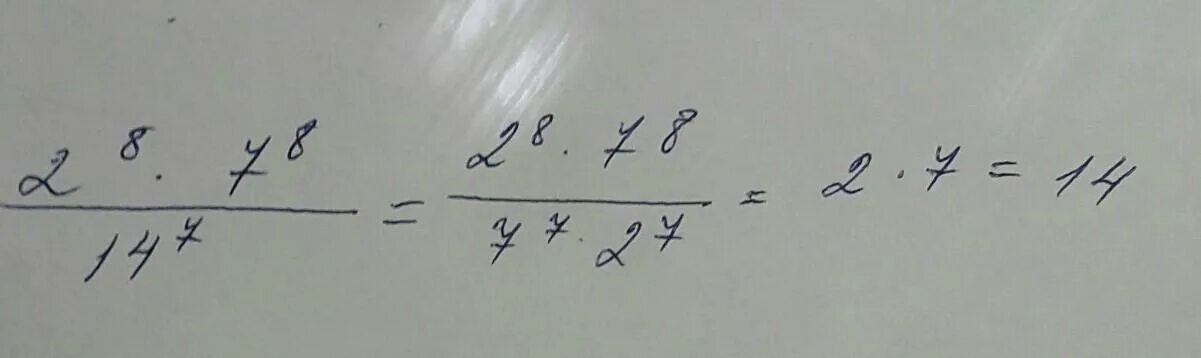 2⁸ · 7⁸ / 14⁷ = 2⁸ · 7⁸ / 7⁷ · 2⁷ = 2 · 7 = 14